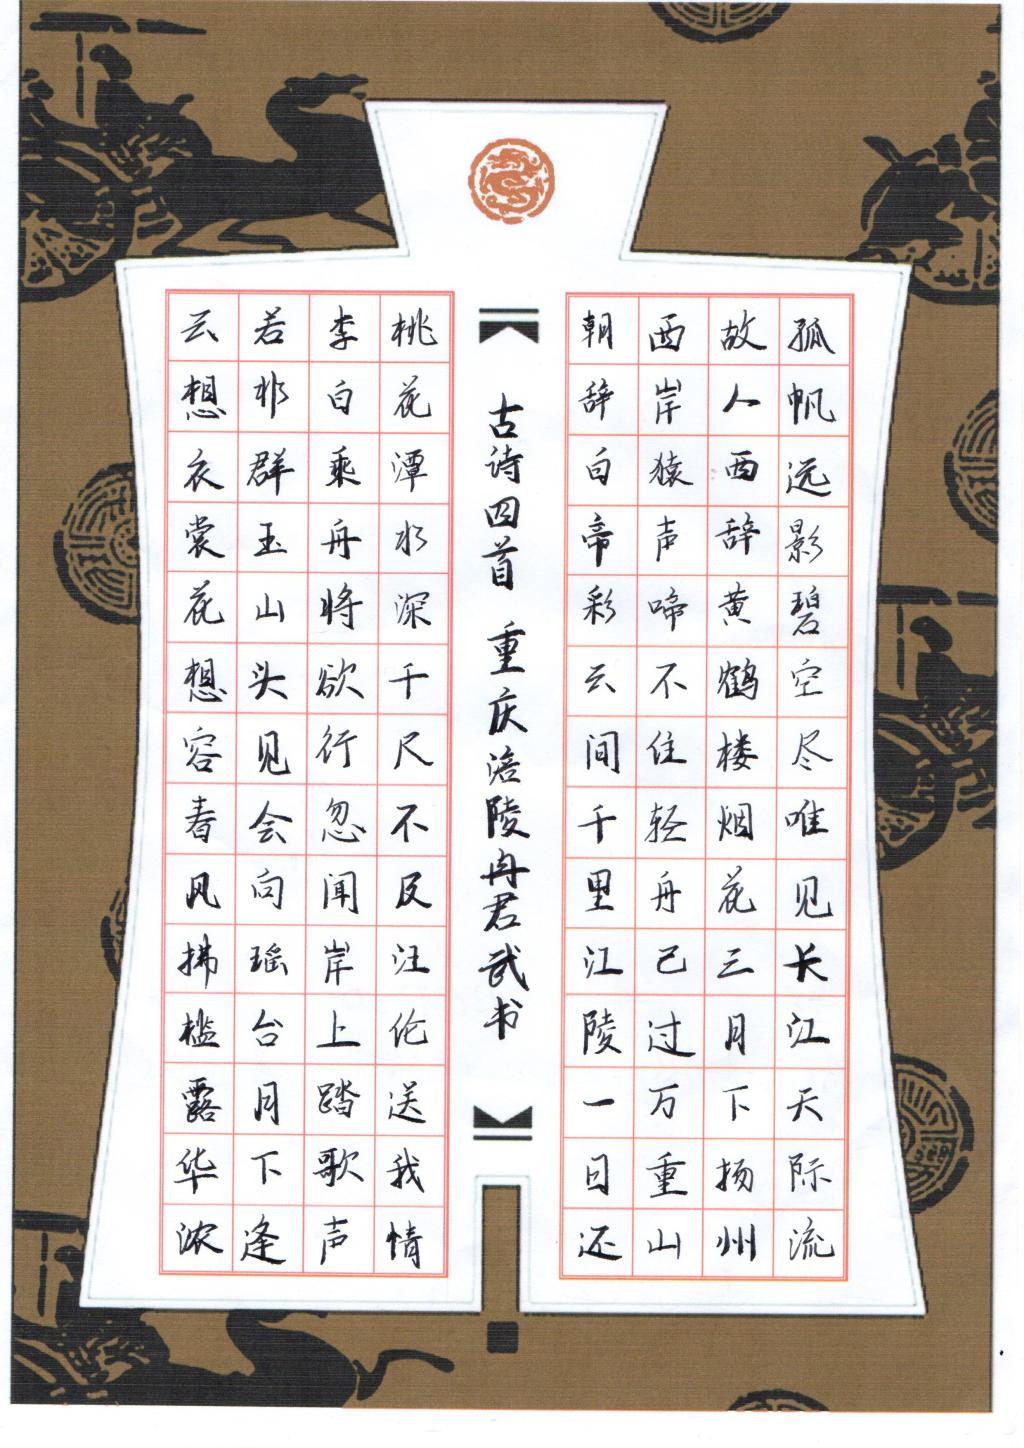 云想衣裳花想容春风拂槛露华浓
若非群玉山头见会向瑶台月下逢
李白乘舟将欲行忽闻岸上踏歌声
桃花潭水深千尺不及汪伦送我情
古诗四首 重庆涪陵冉君武书
朝辞白帝彩云间千里江陵一日还
两岸猿声啼不住轻舟已过万重山
故人西辞黄鹤楼烟花三月下扬州
孤帆远影碧空尽唯见长江天际流